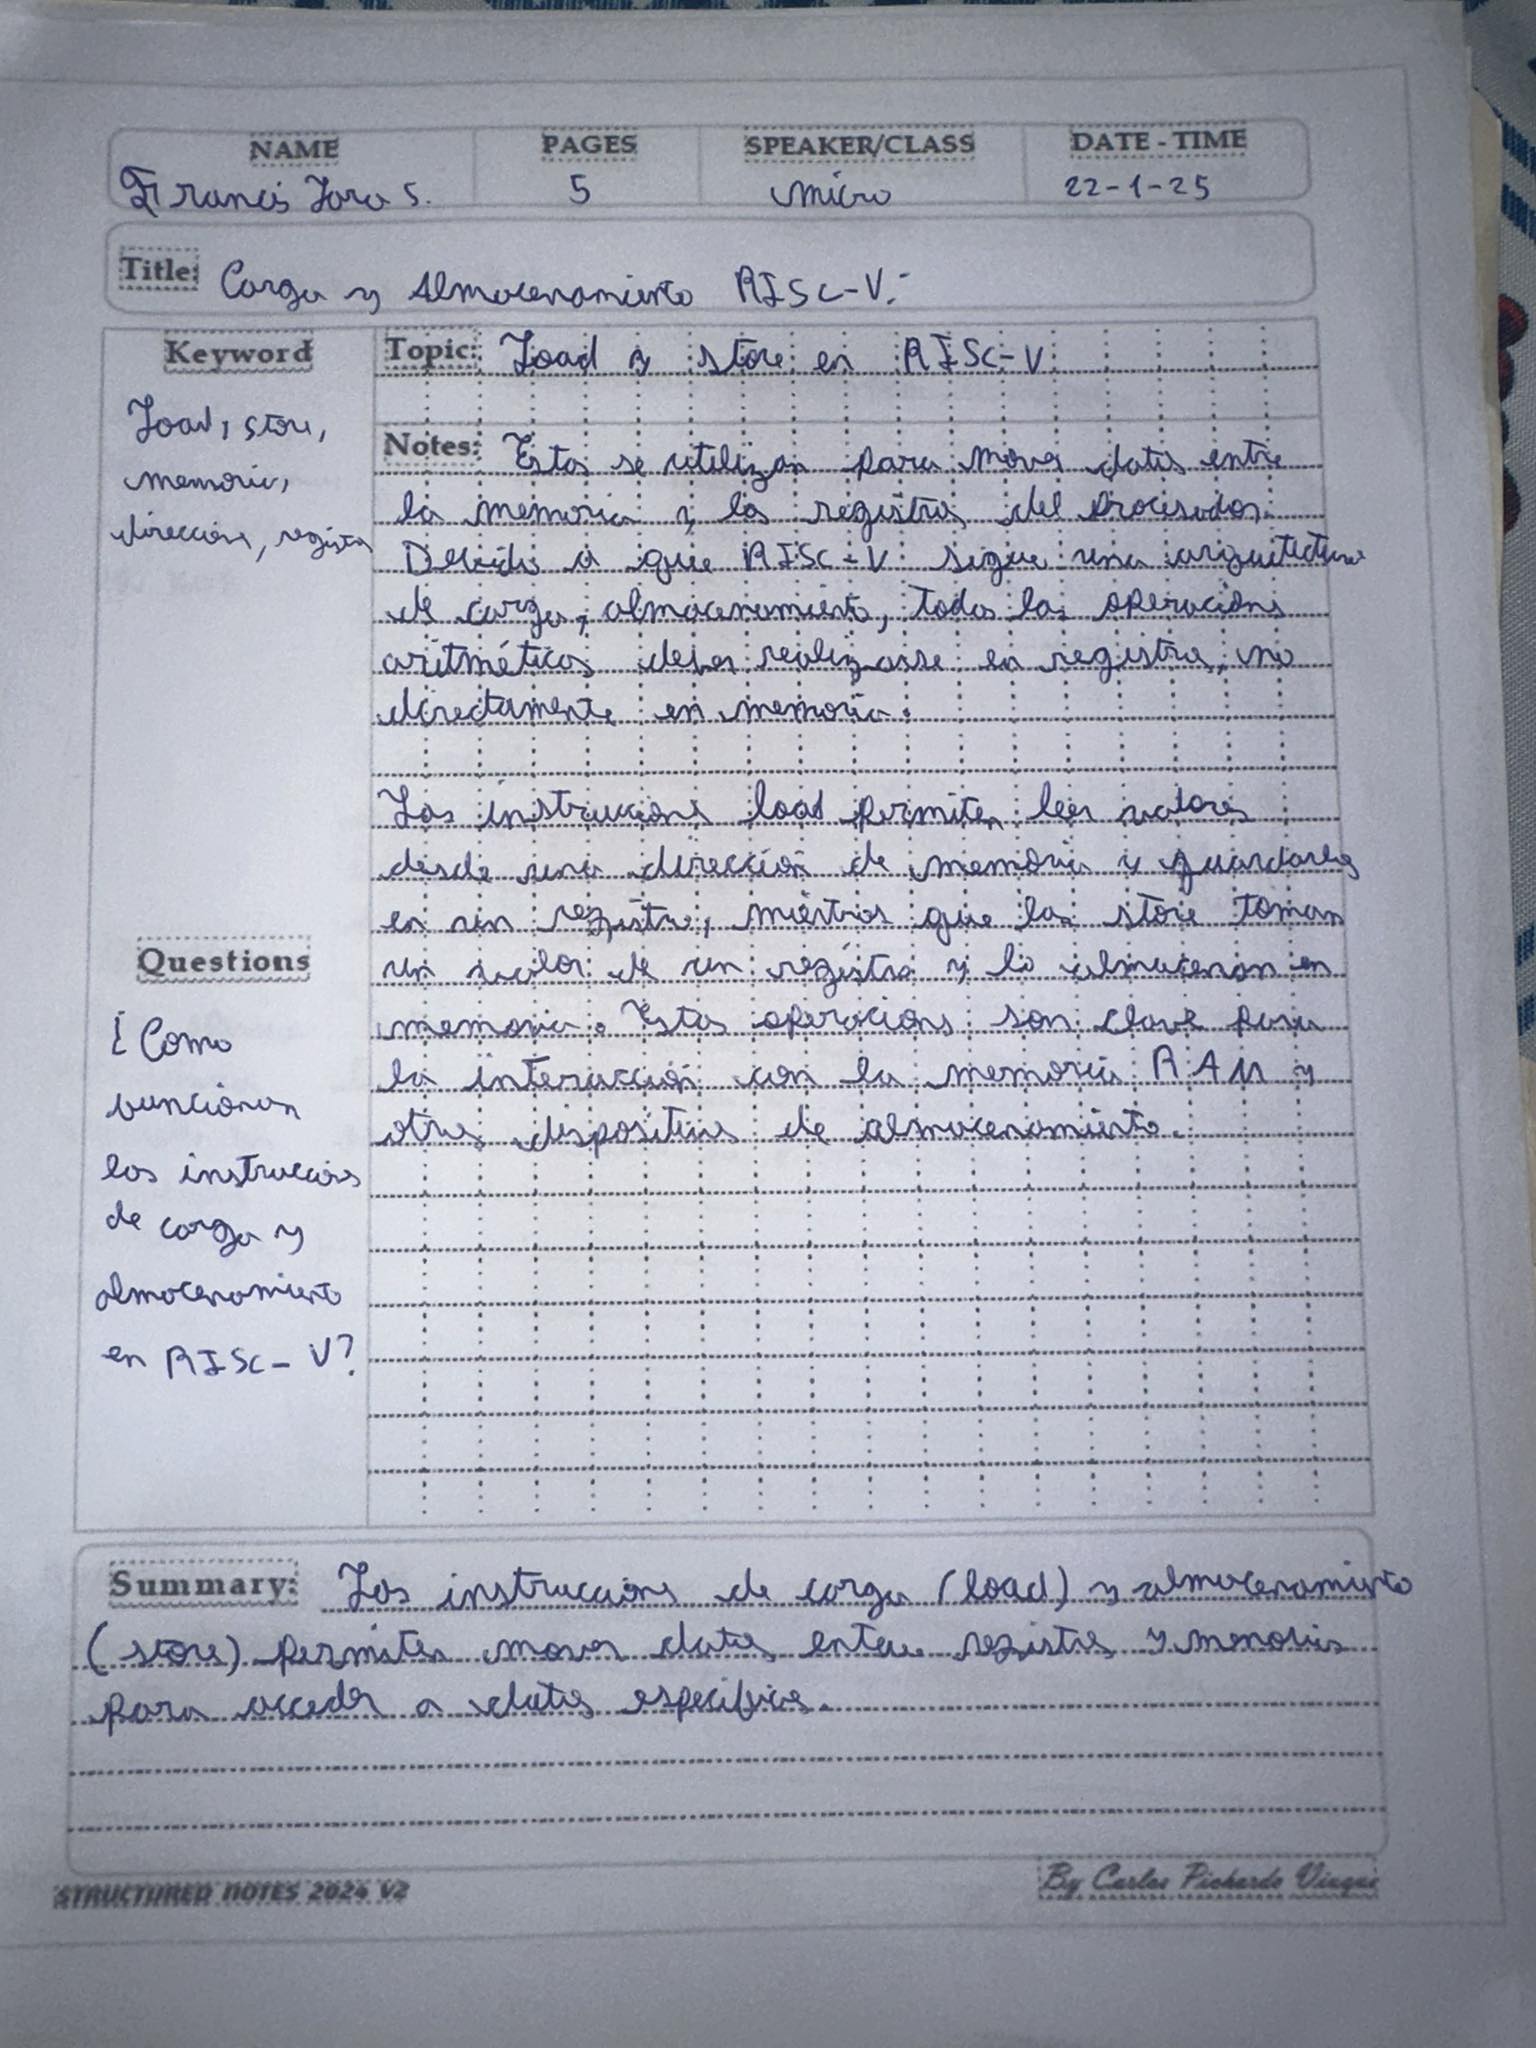 NAME PAGES SPEAKER/CLASS DATE - TIME
Francis Jara S. 5 Micro 22-1-25
Title: Carga y Almacenamiento RISC-V.
Keyword
Load, store,
memoria,
direccion, registro
Topic: Load y store en RISC-V
Notes: Estas se utilizan para mover datos entre
la memoria y los registros del procesador.
Debido a que RISC-V sigue una arquitectura
de carga y almacenamiento, todas las operaciones
aritméticas deben realizarse en registros, no
directamente en memoria.
Las instrucciones load permiten leer valores
desde una dirección de memoria y guardarlos
en un registro, mientras que las store toman
un valor de un registro y lo almacenan en
memoria. Estas operaciones son clave para
la interacción con la memoria RAM y
otros dispositivos de almacenamiento.
Questions
¿Como
funcionan
las instrucciones
de carga y
almacenamiento
en RISC-V?
Summary: Las instrucciones de carga (load) y almacenamiento
(store) permiten mover datos entre registros y memorias
para acceder a datos especificos.
STRUCTURED NOTES 2024 V2 By Carlos Pichardo Viuque